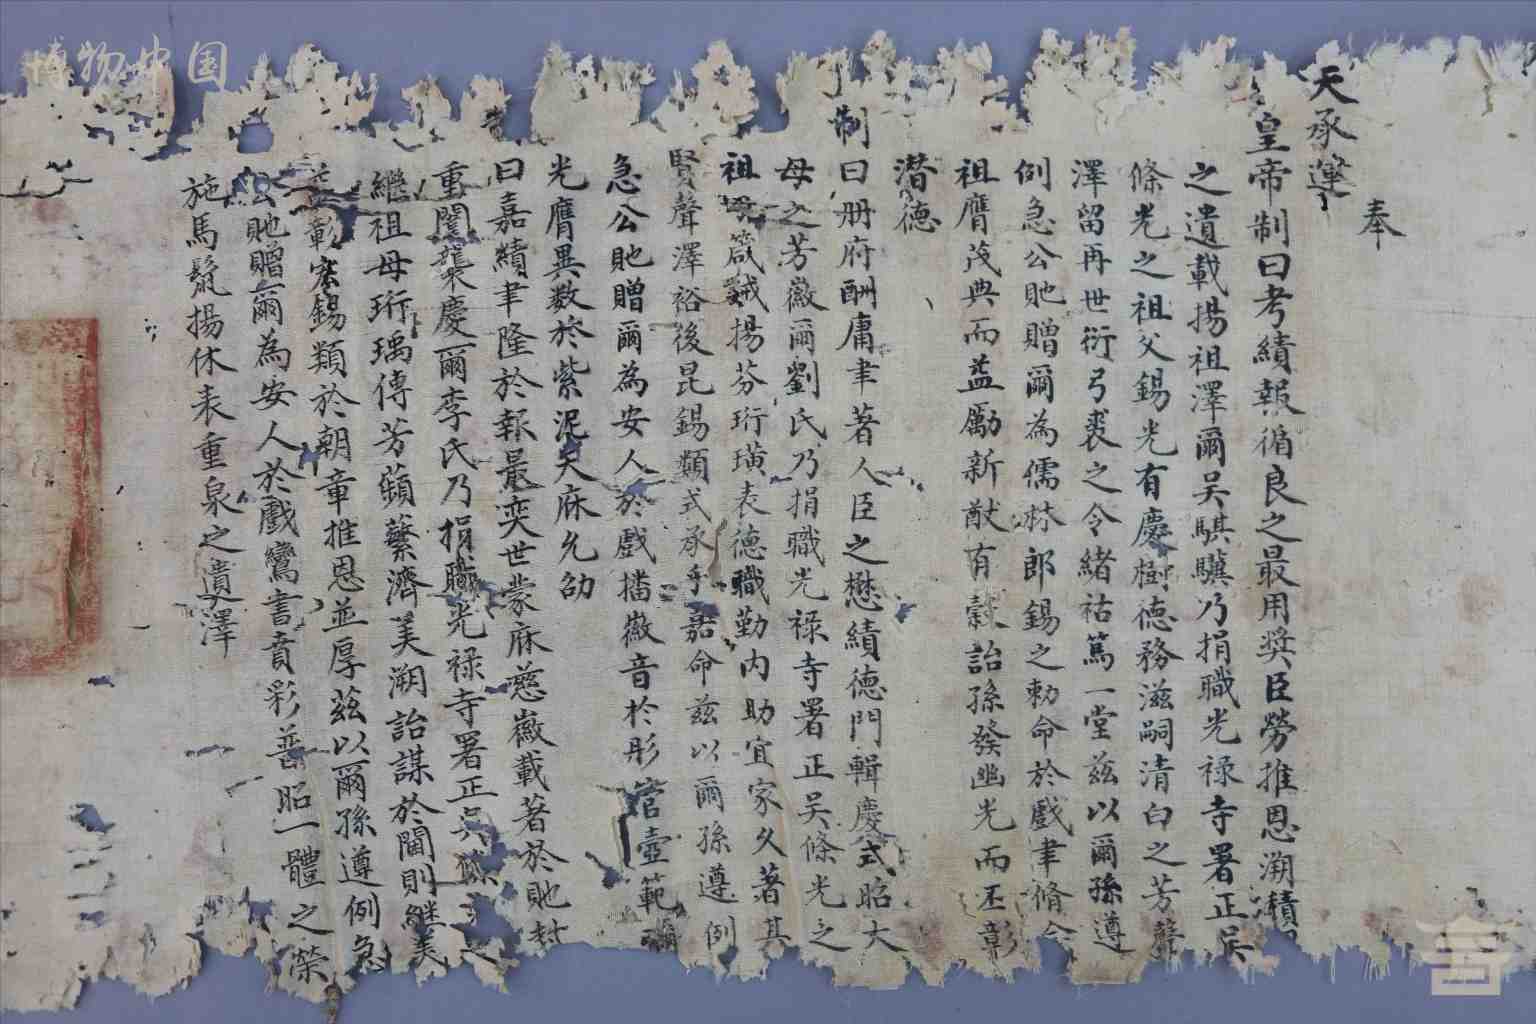 奉
天承運
皇帝制曰考績報循良之最用奬臣勞推恩溯積
之遺載揚祖澤爾吳騏驥乃捐職光禄寺署正吳
條光之祖父錫光有慶樹德務滋嗣清白之芳聲
澤留再世衍弓裘之令緒祜篤一堂兹以爾孫遵
例急公貤贈爾為儒林郎錫之勅命於戲聿脩
祖膺茂典而益勵新猷有穀詒孫發幽光而丕彰
潜德
制曰册府酬庸聿著人臣之懋績德門輯慶式昭大
母之芳徽爾劉氏乃捐職光禄寺署正吳條光之
祖母箴誡揚芬珩璜表德職勤内助宜家久著其
賢聲澤裕後昆錫類式承乎嘉命兹以爾孫遵例
急公貤贈爾為安人於戲播徽音於彤管壼範
光膺異数於紫泥天庥允劭
曰嘉績聿隆於報最奕世蒙庥慈徽載著於貤封
重闈襲慶爾李氏乃捐職光禄寺署正吳條之
繼祖母珩瑀傳芳蘋蘩濟美溯詒謀於閫則繼美
彰宏錫類於朝章推恩並厚兹以爾孫遵例急
公貤贈爾為安人於戲鸞書賁彩普昭一體之榮
施馬鬣揚休表重泉之遺澤
博物中国